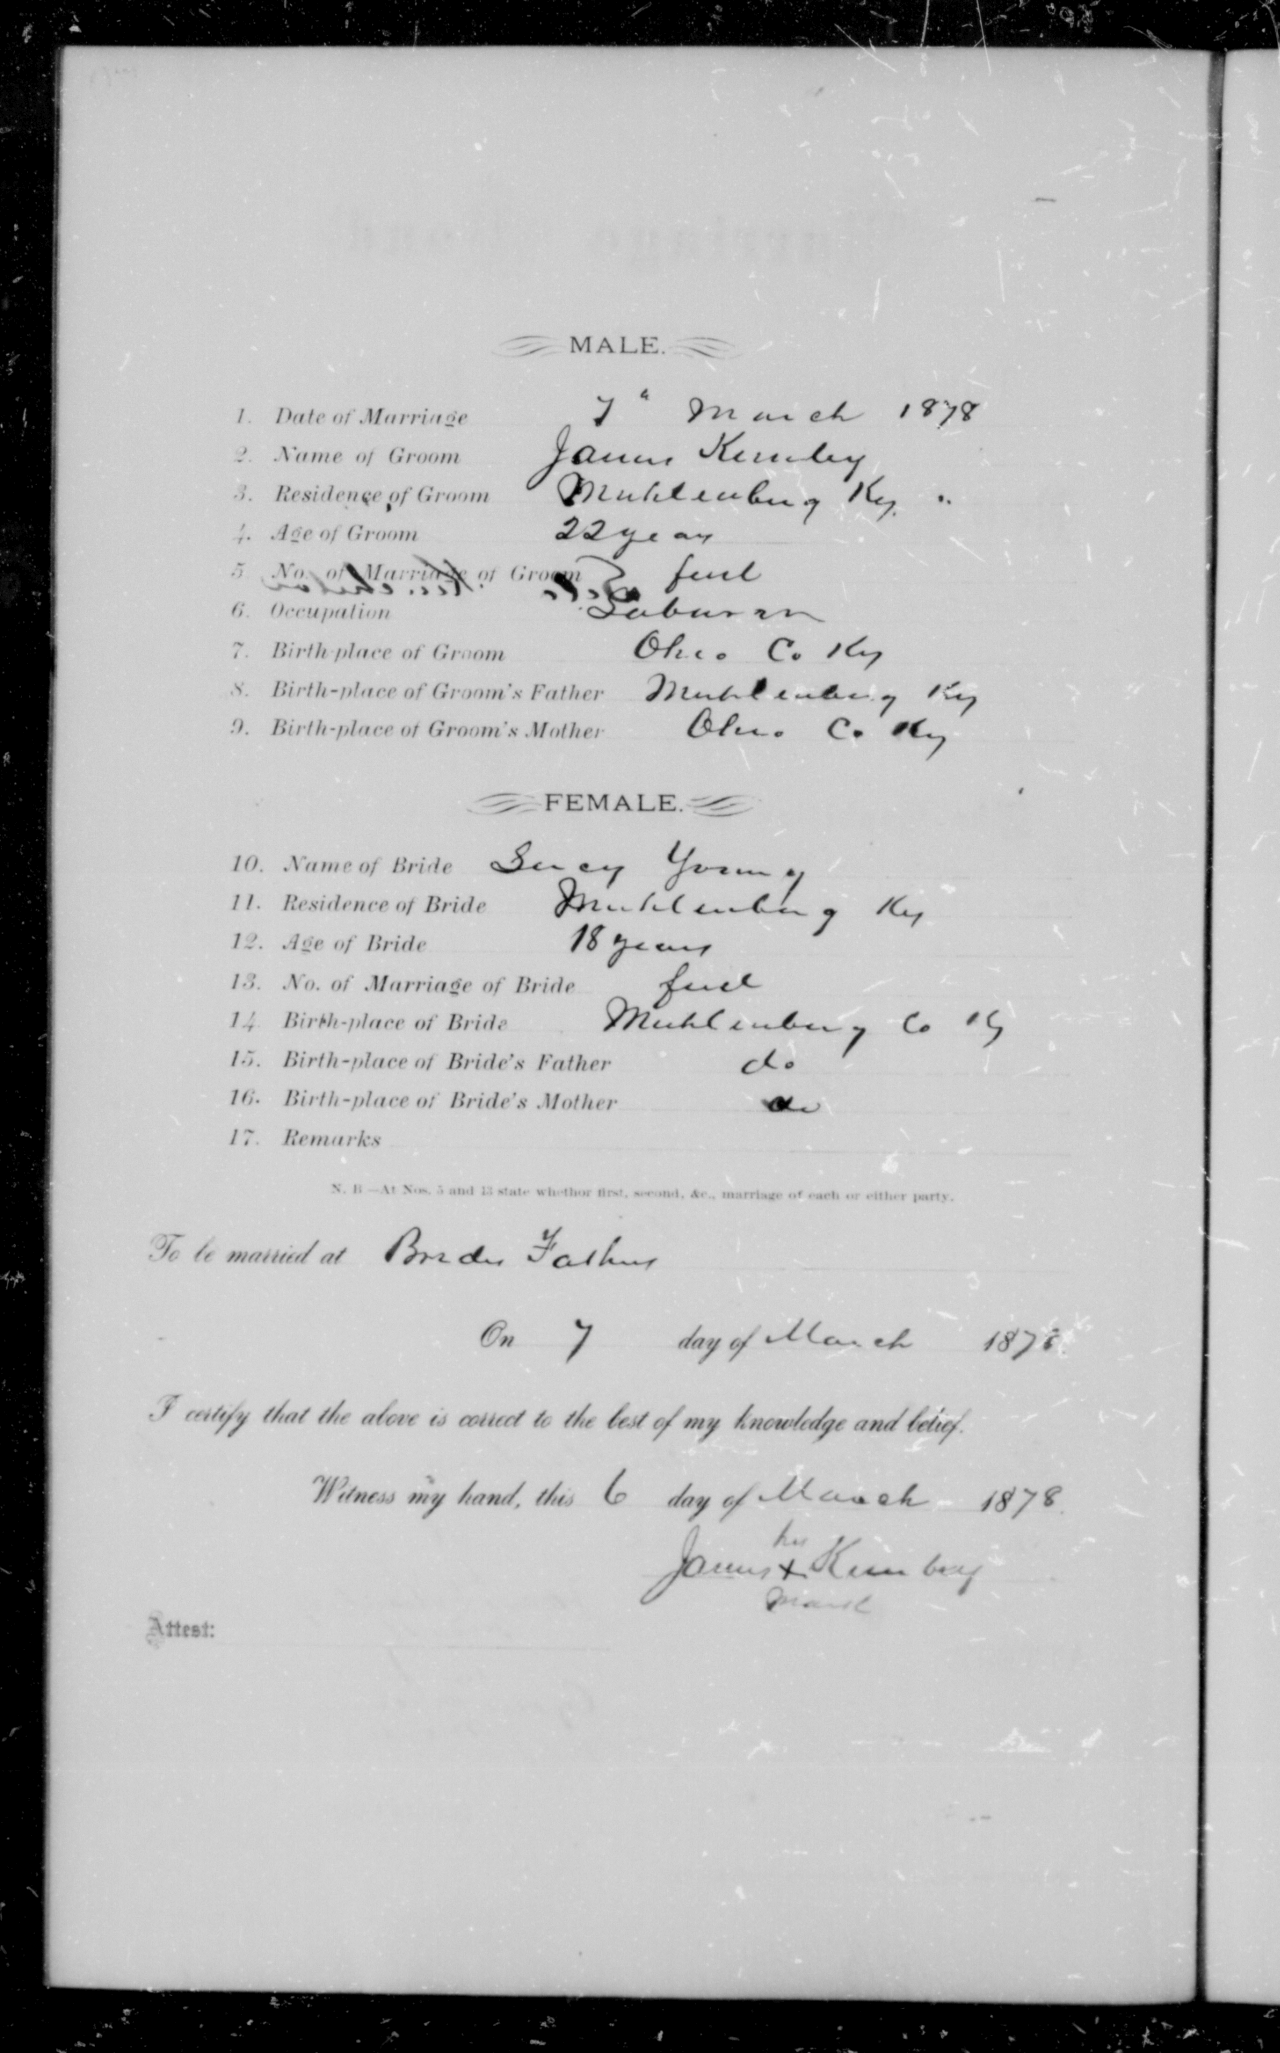 MALE.
1. Date of Marriage 7" March 1878
2. Name of Groom James Kimbley
3. Residence of Groom Muhlenburg Ky.
4. Age of Groom 22 years
5. No. of Marriage of Groom first
6. Occupation
7. Birth-place of Groom Ohio Co Ky
8. Birth-place of Groom's Father Muhlenburg Ky
9. Birth-place of Groom's Mother Ohio Co Ky
FEMALE.
10. Name of Bride Lucy Young
11. Residence of Bride Muhlenburg Ky
12. Age of Bride 18 years
13. No. of Marriage of Bride first
14. Birth-place of Bride Muhlenburg Co Ky
15. Birth-place of Bride's Father do
16. Birth-place of Bride's Mother do
17. Remarks
N. B.—At Nos. 5 and 13 state whether first, second, &c., marriage of each or either party.
To be married at Brides Fathers
On 7 day of March 1878.
I certify that the above is correct to the best of my knowledge and belief.
Witness my hand, this 6 day of March 1878.
his
James + Kimbley
mark
Attest: